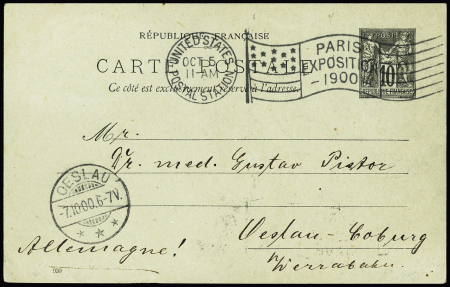 RÉPUBLIQUE FRANÇAISE
CARTE POSTALE
Ce côté est exclusivement réservé à l'adresse.
UNITED STATES
OCT 5
11-AM
POSTAL STATION
PARIS
EXPOSITION
-1900-
POSTE
10
Mr.
Dr. med. Gustav Pistor
OESLAU
-7.10.00.6-7V.
* * *
Oeslau-Coburg
Werrabahn.
Allemagne!